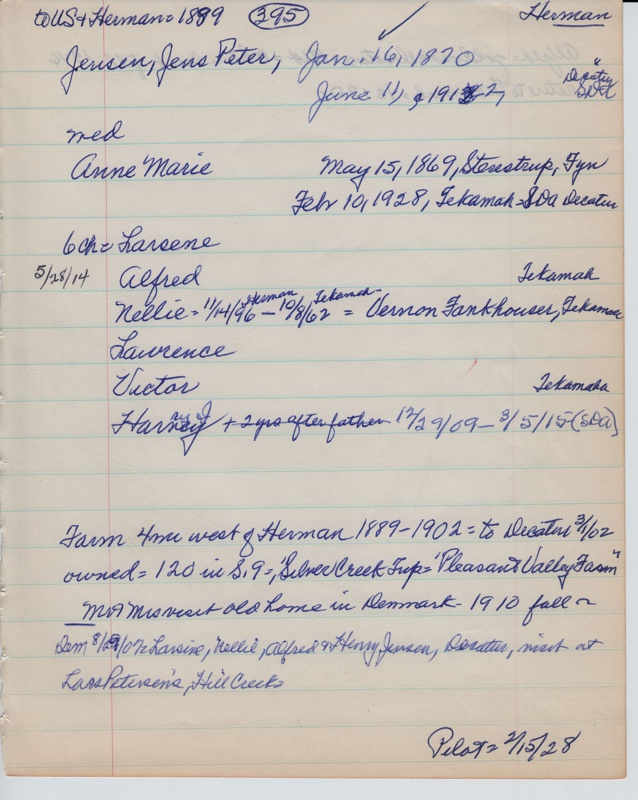 to US & Herman = 1889 395 Herman
Jensen, Jens Peter, Jan. 16, 1870
June 11, 1912, Decatur SDA
med
Anne Marie May 15, 1869, Stenstrup, Fyn
Feb 10, 1928, Tekamah = SDA Decatur
6 ch = Larsene
5/28/14 Alfred Tekamah
Nellie = 11/14/96 Herman - 10/8/62 Tekamah = Vernon Fankhouser, Tekamah
Lawrence
Victor Tekamaha
Harry J + 2 yrs after father 12/29/09 - 3/5/15 (SDA)
Farm 4 mi west of Herman 1889-1902 = to Decatur 3/1/02
owned = 120 in S. 9 =, Silver Creek Twp = "Pleasant Valley Farm"
Mr & Mrs visit old home in Denmark - 1910 fall
Dem = Larsine, Nellie, Alfred & Henry Jensen, Decatur, visit at
Lars Petersen's, Hill Creek
Pilot = 2/15/28